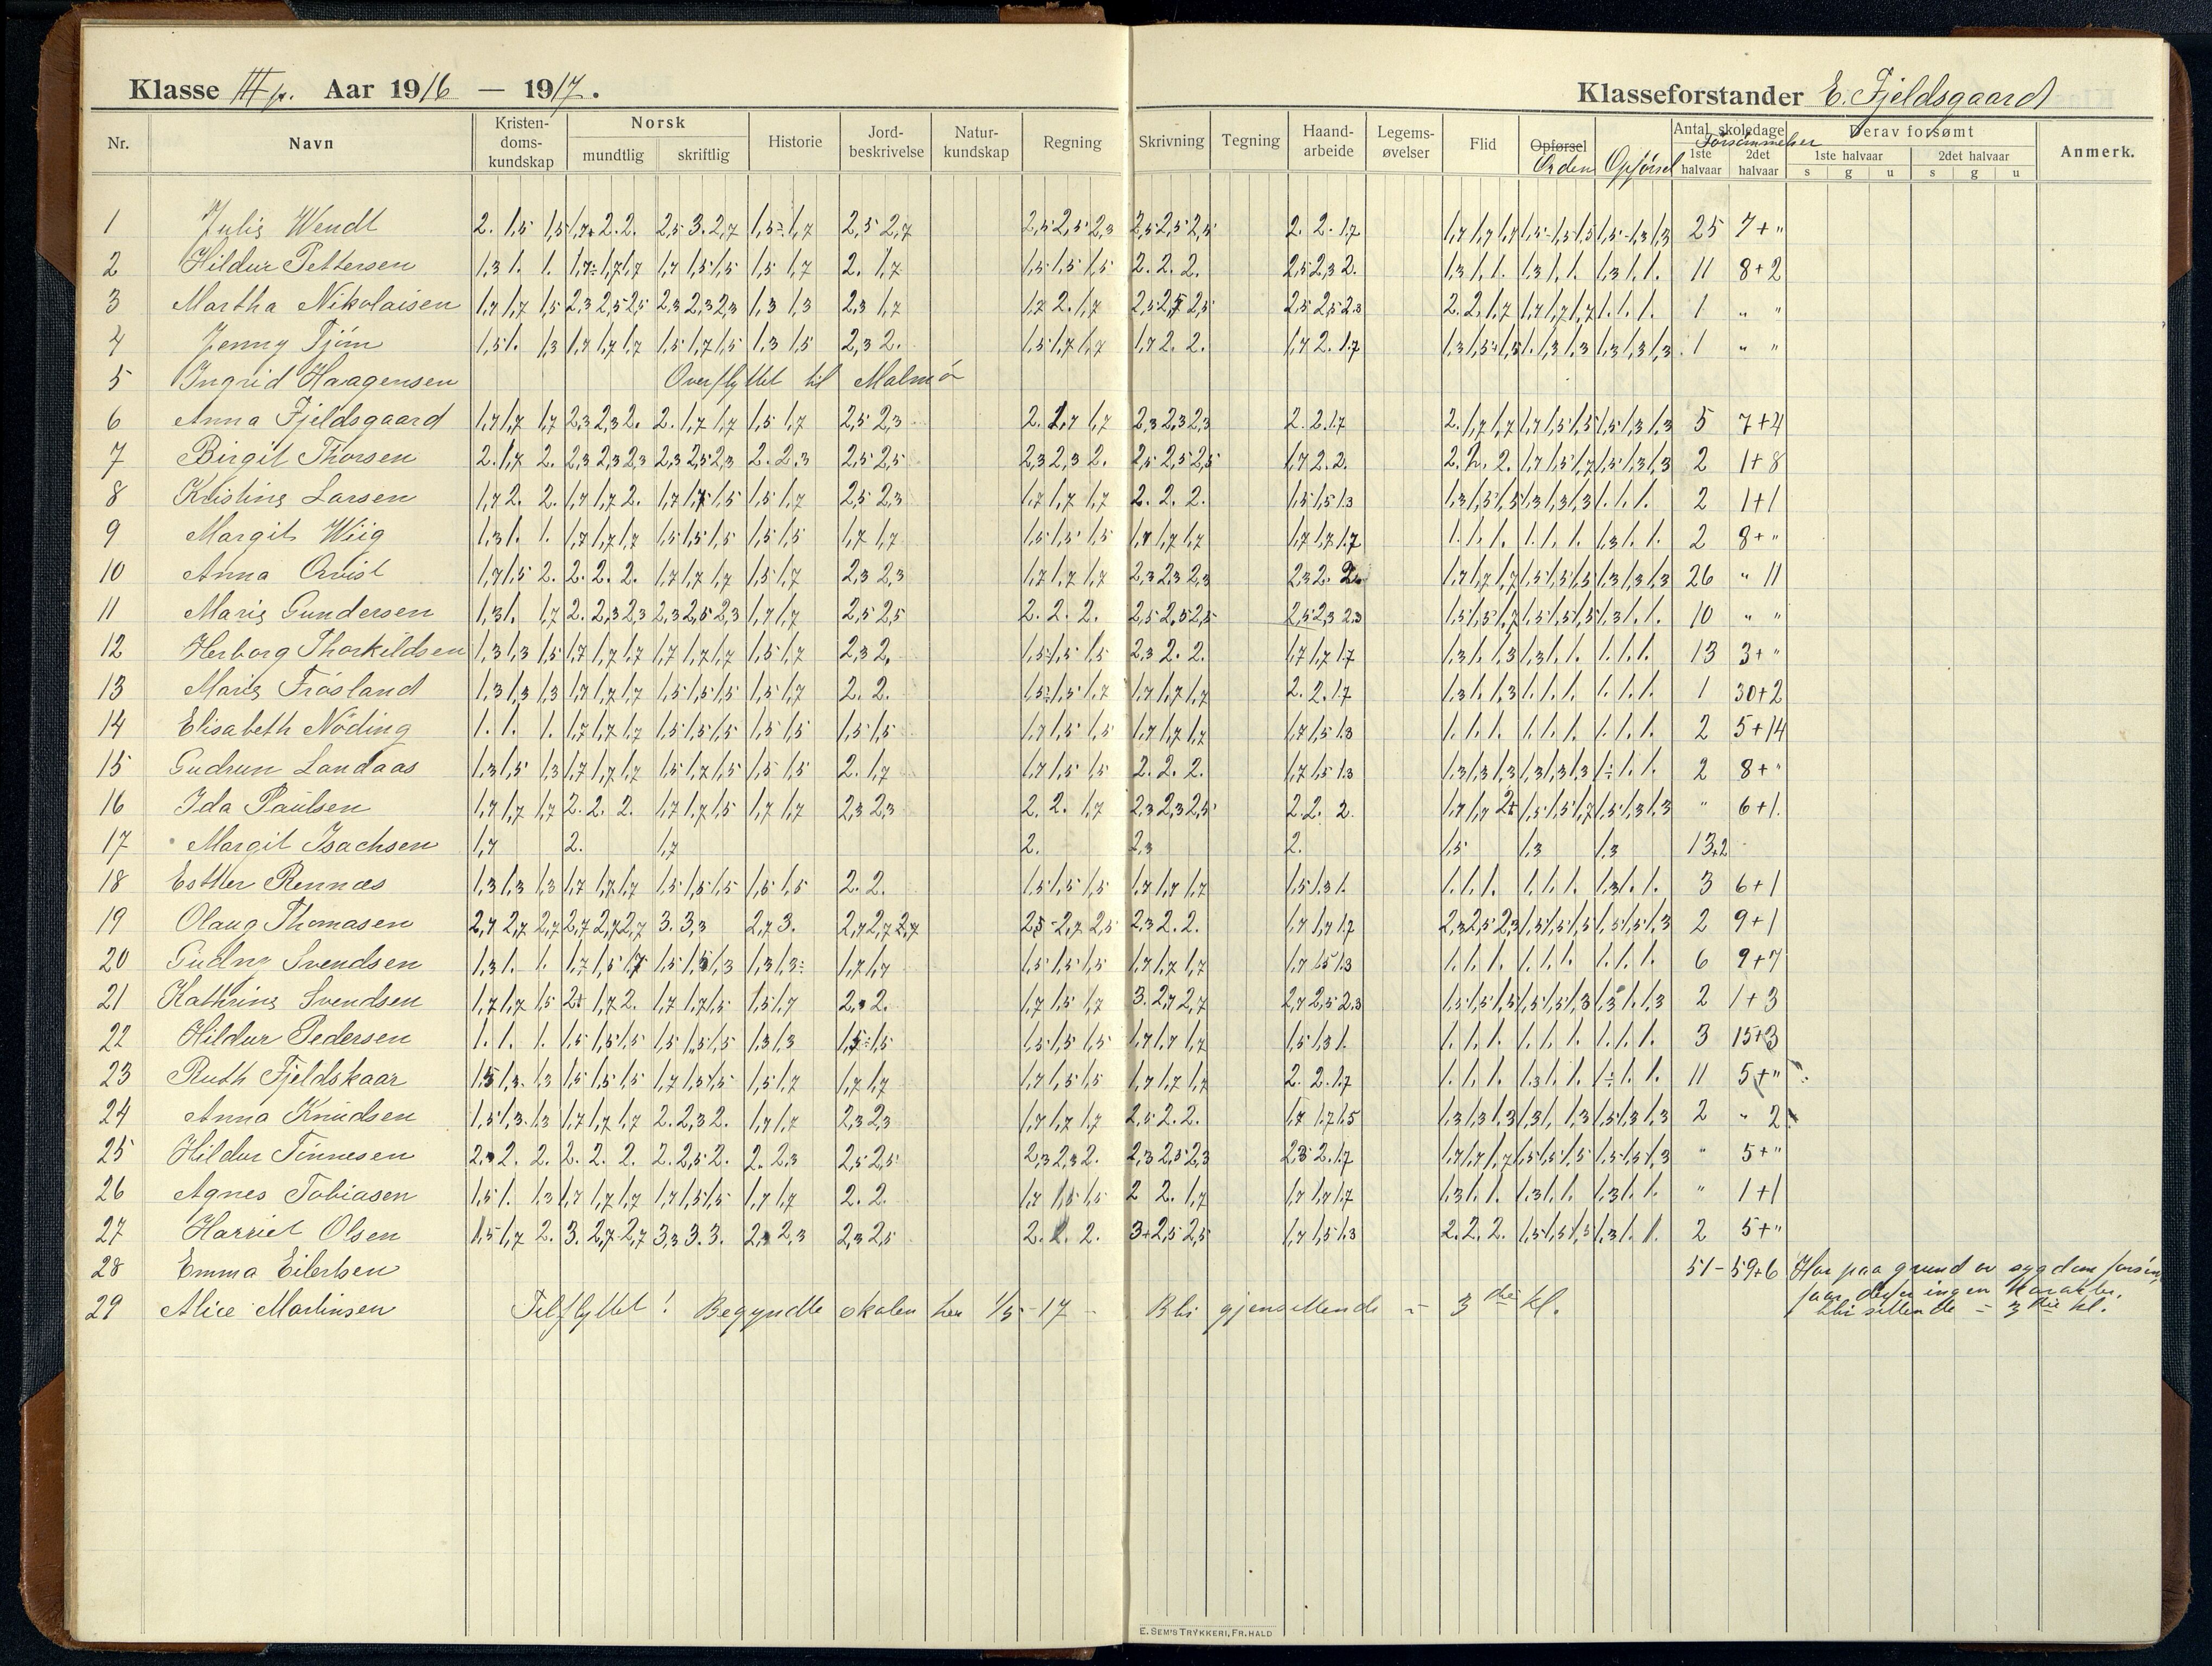 Klasse III p. Aar 1916 — 1917.
Klasseforstander E. Fjeldsgaard
Nr. Navn Kristendomskundskap Norsk mundtlig skriftlig Historie Jordbeskrivelse Naturkundskap Regning Skrivning Tegning Haandarbeide Legemsøvelser Flid Opførsel Orden Opførsel Antal skoledage Forsømmelser 1ste halvaar 2det halvaar Derav forsømt 1ste halvaar s g u 2det halvaar s g u Anmerk.
1 Julie Wendt 2. 1,5 1,5 1,7+ 2. 2. 2,5 3. 2,7 1,5÷ 1,7 2,5 2,7 2,5 2,5 2,3 2,5 2,5 2,5 2. 2. 1,7 1,7 1,7 1,7 1,5- 1,5 1,5 1,5- 1,3 1,3 25 7+"
2 Hildur Pettersen 1,3 1. 1. 1,7÷ 1,7 1,7 1,7 1,5 1,5 1,5 1,7 2. 1,7 1,5 1,5 1,5 2. 2. 2. 2,5 2,3 2. 1,3 1. 1. 1,3 1. 1. 1,3 1. 1. 11 8+2
3 Martha Nikolaisen 1,7 1,7 1,5 2,3 2,5 2,5 2,3 2,3 2,3 1,3 1,3 2,3 1,7 1,7 2. 1,7 2,5 2,5 2,5 2,5 2,5 2,3 2. 2. 1,7 1,7 1,7 1,7 1. 1. 1. 1 " "
4 Jenny Tjøm 1,5 1. 1,3 1,7 1,7 1,7 1,5 1,7 1,5 1,3 1,5 2,3 2. 1,5 1,7 1,7 1,7 2. 2. 1,7 2. 1,7 1,3 1,5+ 1,5 1. 1,3 1,3 1,3 1,3 1,3 1 " "
5 Ingrid Haagensen Overflyttet til Malmø
6 Anna Fjeldsgaard 1,7 1,7 1,7 2,3 2,3 2. 2. 1,7 1,7 1,5 1,7 2,5 2,3 2. 1,7 1,7 2,3 2,3 2,3 2. 2. 1,7 2. 1,7 1,7 1,7 1,5 1,5 1,5 1,3 1,3 5 7+4
7 Birgit Thorsen 2. 1,7 2. 2,3 2,3 2,3 2,3 2,5 2,3 2. 2,3 2,5 2,5 2,3 2,3 2. 2,5 2,5 2,5 1,7 2. 2. 2. 2. 2. 1,7 1,5 1,7 1,5 1,3 1,3 2 1+8
8 Kristine Larsen 1,7 2. 2. 1,7 1,7 2. 1,7 1,7 1,5 1,5 1,7 2,5 2,3 1,7 1,7 1,7 2. 2. 2. 1,5 1,5 1,3 1,3 1,5 1,5 1,3 1,3 1,3 1. 1. 1. 2 1+1
9 Margit Wiig 1,3 1. 1. 1,7 1,7 1,7 1,5 1,5 1,5 1,5 1,5 1,7 1,7 1,5 1,5 1,5 1,7 1,7 1,7 1,7 1,7 1,7 1. 1. 1. 1. 1. 1. 1,3 1. 1. 2 8+"
10 Anna Qvist 1,7 1,5 2. 2. 2. 2. 1,7 1,7 1,7 1,5 1,7 2,3 2,3 1,7 1,7 1,7 2,3 2,3 2,3 2,3 2. 2. 1,7 1,7 1,7 1,5 1,5 1,5 1,3 1,3 1,3 26 " 11
11 Marie Gundersen 1,3 1. 1,7 2. 2,3 2,3 2,3 2,5 2,3 1,7 1,7 2,5 2,5 2. 2. 2. 2,5 2,5 2,5 2,5 2,3 2,3 1,5 1,5 1,7 1,5 1,5 1,5 1,3 1. 1. 10 " "
12 Herborg Thorkildsen 1,3 1,3 1,5 1,7 1,7 1,7 1,7 1,7 1,7 1,5 1,7 2,3 2. 1,5 1,5 1,5 2,3 2. 2. 1,7 1,7 1,7 1,3 1. 1,3 1,3 1. 1. 1. 1. 1. 13 3+"
13 Marie Frøsland 1,3 1,3 1,3 1,7 1,7 1,7 1,5 1,5 1,5 1,5 1,7 2. 2. 1,5÷ 1,5 1,7 1,7 1,7 1,7 2. 2. 1,7 1,3 1. 1,3 1. 1. 1. 1. 1. 1. 1 30+2
14 Elisabeth Nöding 1. 1. 1. 1,7 1,7 1,7 1,5 1,5 1,5 1,5 1,5 1,5 1,5 1,7 1,5 1,5 1,7 1,7 1,7 1,7 1,5 1,3 1. 1. 1. 1. 1. 1. 1. 1. 1. 2 5+14
15 Gudrun Landaas 1,3 1,5 1,3 1,7 1,7 1,7 1,5 1,7 1,5 1,5 1,5 2. 1,7 1,7 1,5 1,5 2. 2. 2. 1,7 1,5 1,3 1,3 1,3 1,3 1,3 1,3 1,3 1÷ 1. 1. 2 8+"
16 Ida Paulsen 1,7 1,7 1,7 2. 2. 2. 1,7 1,7 1,5 1,7 1,7 2,3 2,3 2. 2. 1,7 2,3 2,3 2,5 2. 2. 2. 1,7 1,7 2+ 1,5 1,5 1,7 1,5 1,3 1,3 " 6+1.
17 Margit Isachsen 1,7 2. 1,7 2. 2,3 2. 1,5 1,3 1,3 13+2
18 Esther Rennæs 1,3 1,3 1,3 1,7 1,7 1,7 1,5 1,5 1,5 1,5 1,5 2. 2. 1,5 1,5 1,5 1,7 1,7 1,7 1,5 1,3 1. 1. 1. 1. 1. 1. 1. 1,3 1. 1. 3 6+1
19 Olaug Thomasen 2,7 2,7 2,7 2,7 2,7 2,7 3. 3,3 2,7 3. 2,7 2,7 2,7 2,5- 2,7 2,5 2,3 2. 2. 1,7 1,7 1,7 2,3 2,5 2,3 1,5 1,5 1,5 1,5 1,5 1,3 2 9+1
20 Gudny Svendsen 1,3 1. 1. 1,7 1,5 1,7 1,5 1,5 1,3 1,3 1,3÷ 1,7 1,7 1,5 1,5 1,5 1,7 1,7 1,7 1,7 1,5 1,3 1. 1. 1. 1. 1. 1. 1. 1. 1. 6 9+7
21 Kathrine Svendsen 1,7 1,7 1,5 2+ 1,7 2. 1,7 1,7 1,5 1,5 1,7 2,3 2. 1,7 1,5 1,7 3. 2,7 2,7 2,7 2,5 2,3 1,5 1,5 1,5 1,5 1,5 1,3 1,3 1. 1,3 2 1+3
22 Hildur Pedersen 1. 1. 1. 1,5 1,5 1,5 1,5 1,5 1,5 1,3 1,3 1,5÷ 1,5 1,5 1,5 1,5 1,7 1,7 1,7 1,5 1,3 1. 1. 1. 1. 1. 1. 1. 1. 1. 1. 3 15+3
23 Ruth Fjeldskaar 1,5 1,3 1,3 1,5 1,5 1,5 1,7 1,5 1,5 1,5 1,7 1,7 1,7 1,7 1,5 1,5 1,7 1,7 1,7 2. 2. 1,7 1. 1. 1. 1,3 1. 1. 1÷ 1. 1. 11 5+"
24 Anna Knudsen 1,5 1,3 1,3 1,7 1,7 1,7 2. 2,3 2. 1,7 1,7 2,3 2,3 1,7 1,7 1,7 2,5 2. 2. 1,7 1,7 1,5 1,3 1,3 1,3 1,3 1. 1,3 1,5 1,3 1,3 2 " 2
25 Hildur Tønnesen 2,3 2. 2. 2. 2. 2. 2. 2,5 2. 2. 2,3 2,5 2,5 2,3 2,3 2. 2,3 2,5 2,3 2,3 2. 1,7 1,7 1,7 1,7 1,5 1,5 1,5 1,5 1,5 1,3 " 5+"
26 Agnes Tobiasen 1,5 1. 1,3 1,7 1,7 1,7 1,7 1,5 1,5 1,7 1,7 2. 2. 1,7 1,5 1,5 2 2. 1,7 1,7 1,7 1,7 1,3 1. 1. 1,3 1. 1. 1,3 1. 1. " 1+1
27 Harriet Olsen 1,5 1,7 2. 3. 2,7 2,7 3,3 3. 3. 2,3 2,3 2,3 2,5 2. 2. 2. 3+ 2,5 2,5 1,7 1,5 1,3 2. 2. 2. 1,5 1,5 1,5 1,3 1. 1. 2 5+"
28 Emma Eilertsen 51 - 59+6 Har paa grund av sygdom forsøm
faar derfor ingen Karakter.
blir sittende i 3die kl.
29 Alice Martinsen Tilflyttet! Begyndte skolen her 1/5 -17 - Blir gjensittende i 3die kl.
E. SEM'S TRYKKERI, FR.HALD